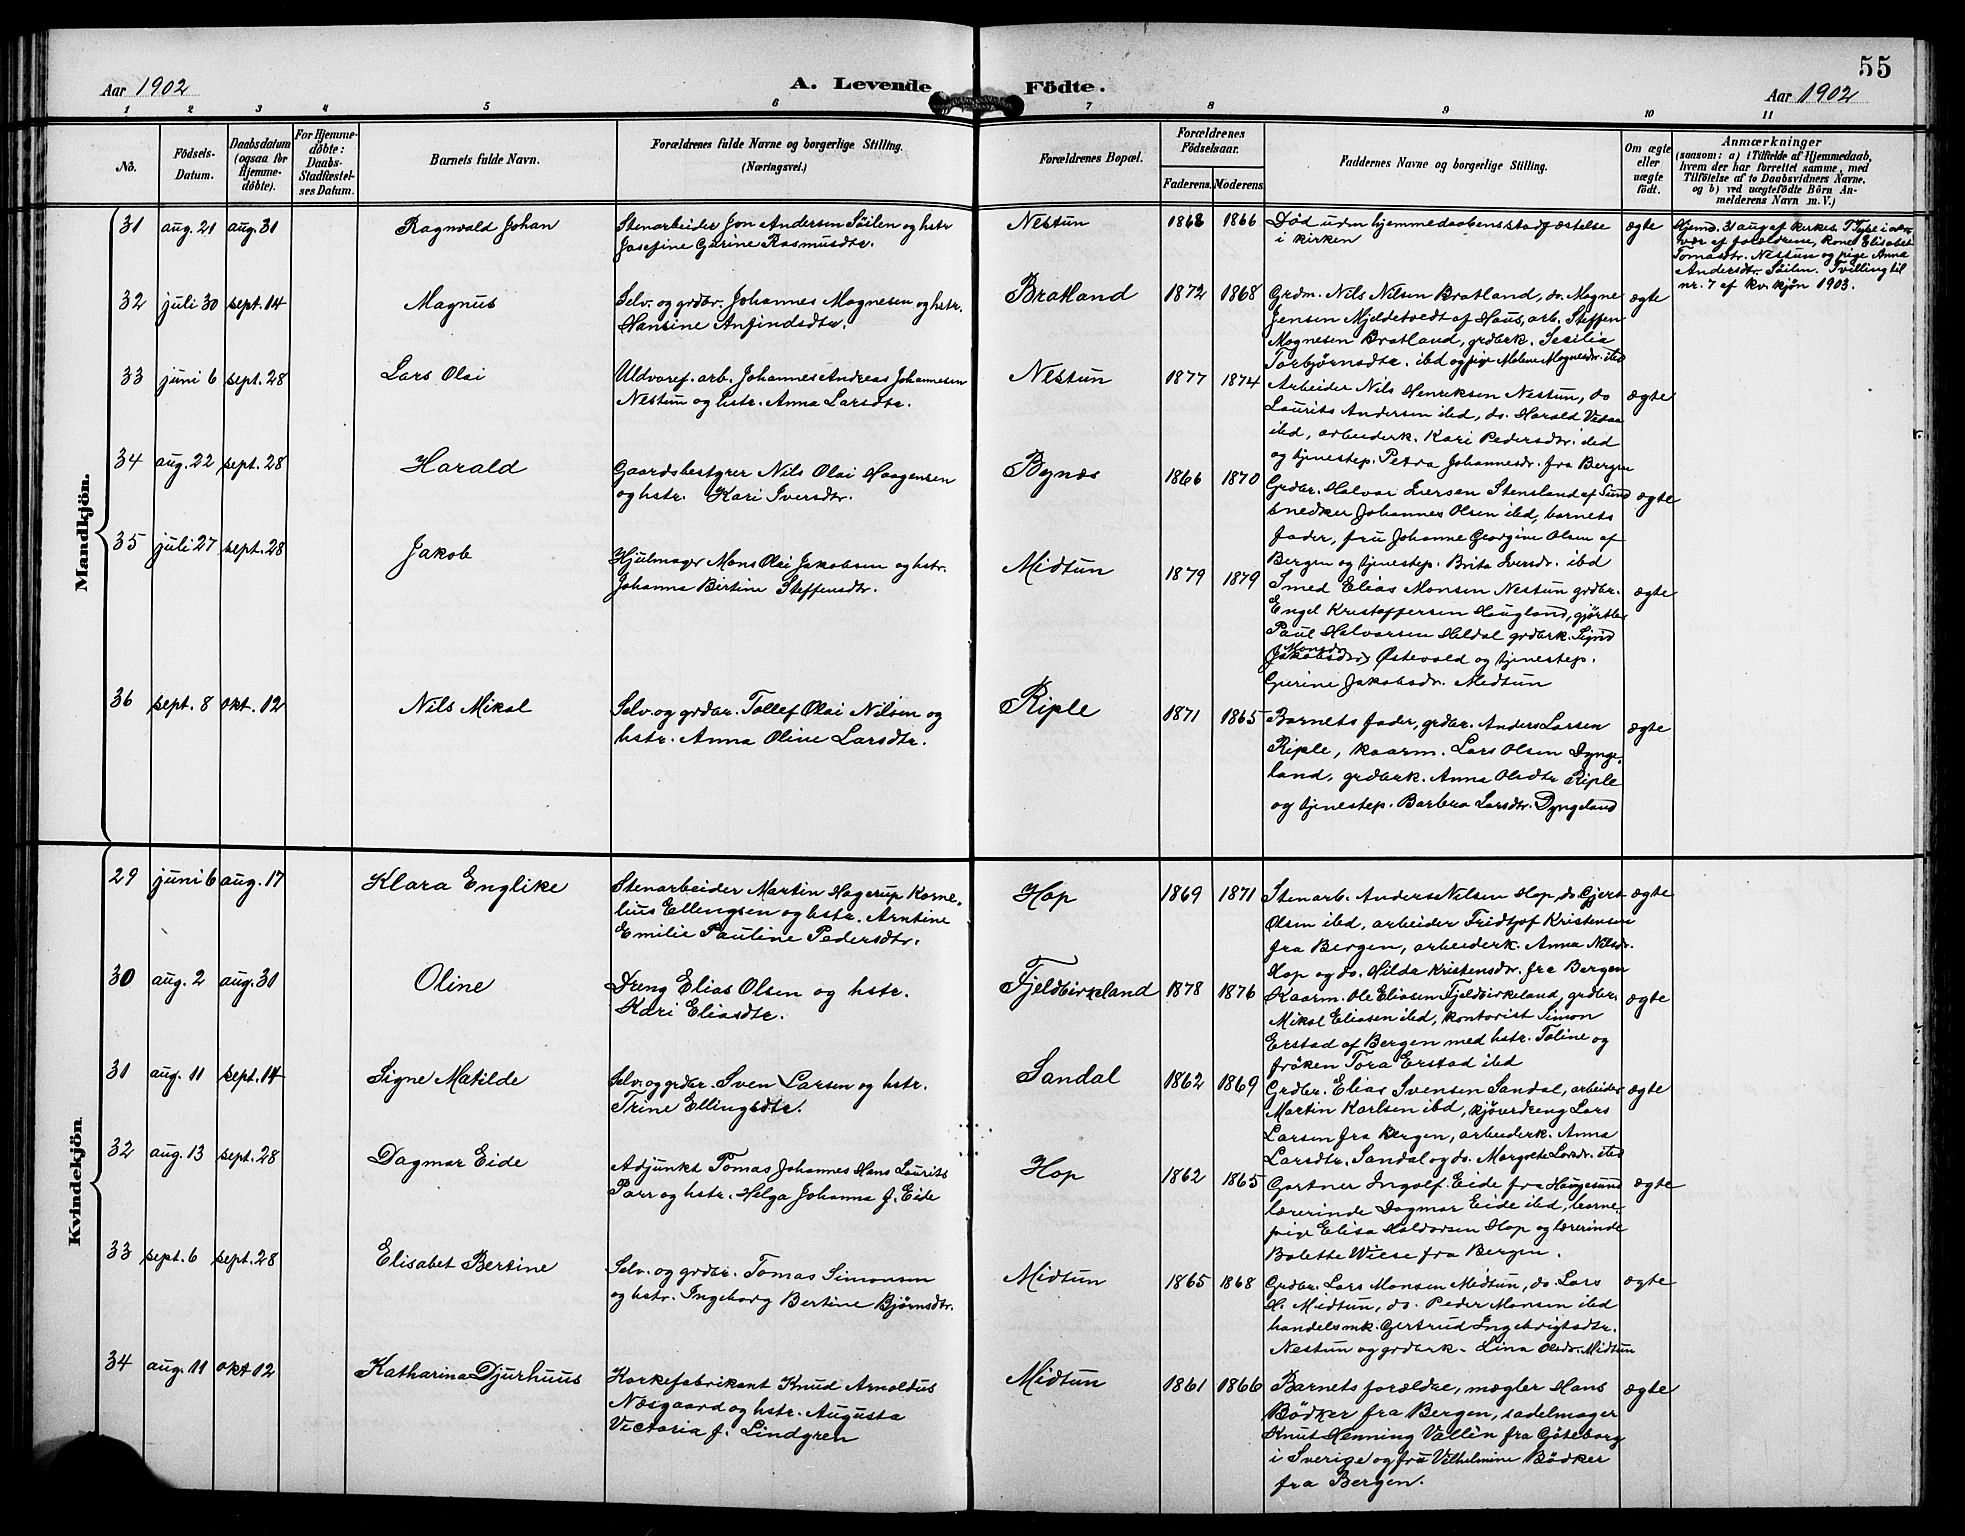 55
Aar 1902
A. Levende Födte.
Aar 1902
1 2 3 4 5 6 7 8 9 10 11
No.
Födsels-
Datum.
Daabsdatum
(ogsaa for
Hjemme-
döbte).
For Hjemme-
döbte:
Daabs-
Stadfæstel-
ses Datum.
Barnets fulde Navn.
Forældrenes fulde Navne og borgerlige Stilling.
(Næringsvei.)
Forældrenes Bopæl.
Forældrenes
Födselsaar.
Faderens. Moderens.
Faddernes Navne og borgerlige Stilling.
Om ægte
eller
uægte
födt.
Anmærkninger
(saasom: a) i Tilfælde af Hjemmedaab,
hvem der har forrettet samme, med
Tilföielse af to Daabsvidners Navne,
og b) ved uægtefödte Börn An-
melderens Navn m. V.)
Mandkjön.
31 aug. 21 aug. 31 Ragnvald Johan
Stenarbeider Jon Andersen Söilen og hstr
Josefine Gurine Rasmusdtr.
Nestun 1868 1866
Død uden hjemmedaabens stadfæstelse
i kirken
ægte
Hjemd. 31 aug af kirkes. T Tyse i over
vær af forældrene, kone Elisabet
Tomasdtr. Nestun og pige Anna
Andersdtr. Söilen. Tvilling til
nr. 7 af kv. kjøn 1903.
32 juli 30 sept. 14 Magnus
Selv. og grdbr. Johannes Magnesen og hstr.
Hansine Anfindsdtr.
Bratland 1872 1868
Grdm. Nils Nilsen Bratland, do. Magne
Jensen Mjeldetvedt af Haus, arb. Steffen
Magnesen Bratland, grdbrk. Sesilia
Torbjørnsdtr. ibd og pige Malene Magnesdr. ibd
ægte
33 juni 6 sept. 28 Lars Olai
Uldvaref. arb. Johannes Andreas Johannesen
Nestun og hstr. Anna Larsdtr.
Nestun 1877 1874
Arbeider Nils Henriksen Nestun, do
Laurits Andersen ibd, do. Harald Vedaa
ibd, arbeiderk. Kari Pedersdtr. ibd
og tjenestep. Petra Johannesdr. fra Bergen
ægte
34 aug. 22 sept. 28 Harald
Gaardsbestyrer Nils Olai Haagensen
og hstr. Kari Iversdtr.
Bynæs 1866 1870
Grdbr. Halvar Iversen Stensland af Sund
snedker Johannes Olsen ibd, barnets
fader, fru Johanne Georgine Olsen af
Bergen og tjenestep. Brita Iversdr. ibd
ægte
35 juli 27 sept. 28 Jakob
Hjulmager Mons Olai Jakobsen og hstr.
Johanna Bertine Steffensdtr.
Midtun 1879 1879
Smed Elias Monsen Nestun grdbr.
Engel Kristoffersen Haugland, gjørtler
Paul Halvorsen Heldal grdbrk.
Monsdr
Jakobsdr. Østevold og tjenestep.
Gurine Jakobsdr. Medtun
ægte
36 sept. 8 okt. 12 Nils Mikal
Selv. og grdbr. Tollef Olai Nilsen og
hstr. Anna Oline Larsdtr.
Riple 1871 1865
Barnets fader, grdbr. Anders Larsen
Riple, kaarm. Lars Olsen Dynge-
land, grdbrk. Anna Olsdtr Riple
og tjenestep. Barbra Larsdtr. Dyngeland
ægte
Kvindekjön.
29 juni 6 aug. 17 Klara Englike
Stenarbeider Martin Hagerup Korne-
lius Ellingsen og hstr. Arntine
Emilie Pauline Pedersdtr.
Hop 1869 1871
Stenarb. Anders Nilsen Hop, do Gjert
Olsen ibd, arbeider Fridtjof Kristensen
fra Bergen, arbeiderk. Anna Nilsdr.
Hop og do. Hilda Kristensdr. fra Bergen
ægte
30 aug. 2 aug. 31 Oline
Dreng Elias Olsen og hstr.
Kari Eliasdtr.
Fjeldbirkeland 1878 1876
Kaarm. Ole Eliasen Fjeldbirkeland, grdbr.
Mikal Eliasen ibd, kontorist Simon
Erstad af Bergen med hstr. Taline og
frøken Tora Erstad ibd
ægte
31 aug. 11 sept. 14 Signe Matilde
Selv. og grdbr. Sven Larsen og hstr.
Trine Ellingsdtr.
Sandal 1862 1869
Grdbr. Elias Svensen Sandal, arbeider
Martin Karlsen ibd, kjøverdreng Lars
Larsen fra Bergen, arbeiderk. Anna
Larsdtr. Sandal og do. Margrete Larsdr. ibd
ægte
32 aug. 13 sept. 28 Dagmar Eide
Adjunkt Tomas Johannes Hans Laurits
Parr og hstr. Helga Johanna f. Eide
Hop 1862 1865
Gartner Ingolf Eide fra Haugesund
lærerinde Dagmar Eide ibd, barne-
pige Elisa Haldorsen Hop og lærerinde
Bolette Wiese fra Bergen.
ægte
33 sept. 6 sept. 28 Elisabet Bertine
Selv. og grdbr. Tomas Simonsen
og hstr. Ingeborg Bertine Bjørnsdtr.
Midtun 1865 1868
Grdbr. Lars Monsen Midtun, do. Lars
H. Midtun, do. Peder Monsen ibd
handelsmk. Gertrud Ingebrigtsdtr.
Nestun og grdbrk. Lina Olsdr. Midtun
ægte
34 aug. 11 okt 12 Katharina Djurhuus
Korkefabrikant Knud Arnoldus
Næsgaard og hstr. Augusta
Victoria f. Lindgren
Midtun 1861 1866
Barnets forældre, mægler Hans
Bödker fra Bergen, sadelmager
Knut Henning Vallin fra Göteborg
i Sverige og fru Vilhelmine Bödker
fra Bergen.
ægte